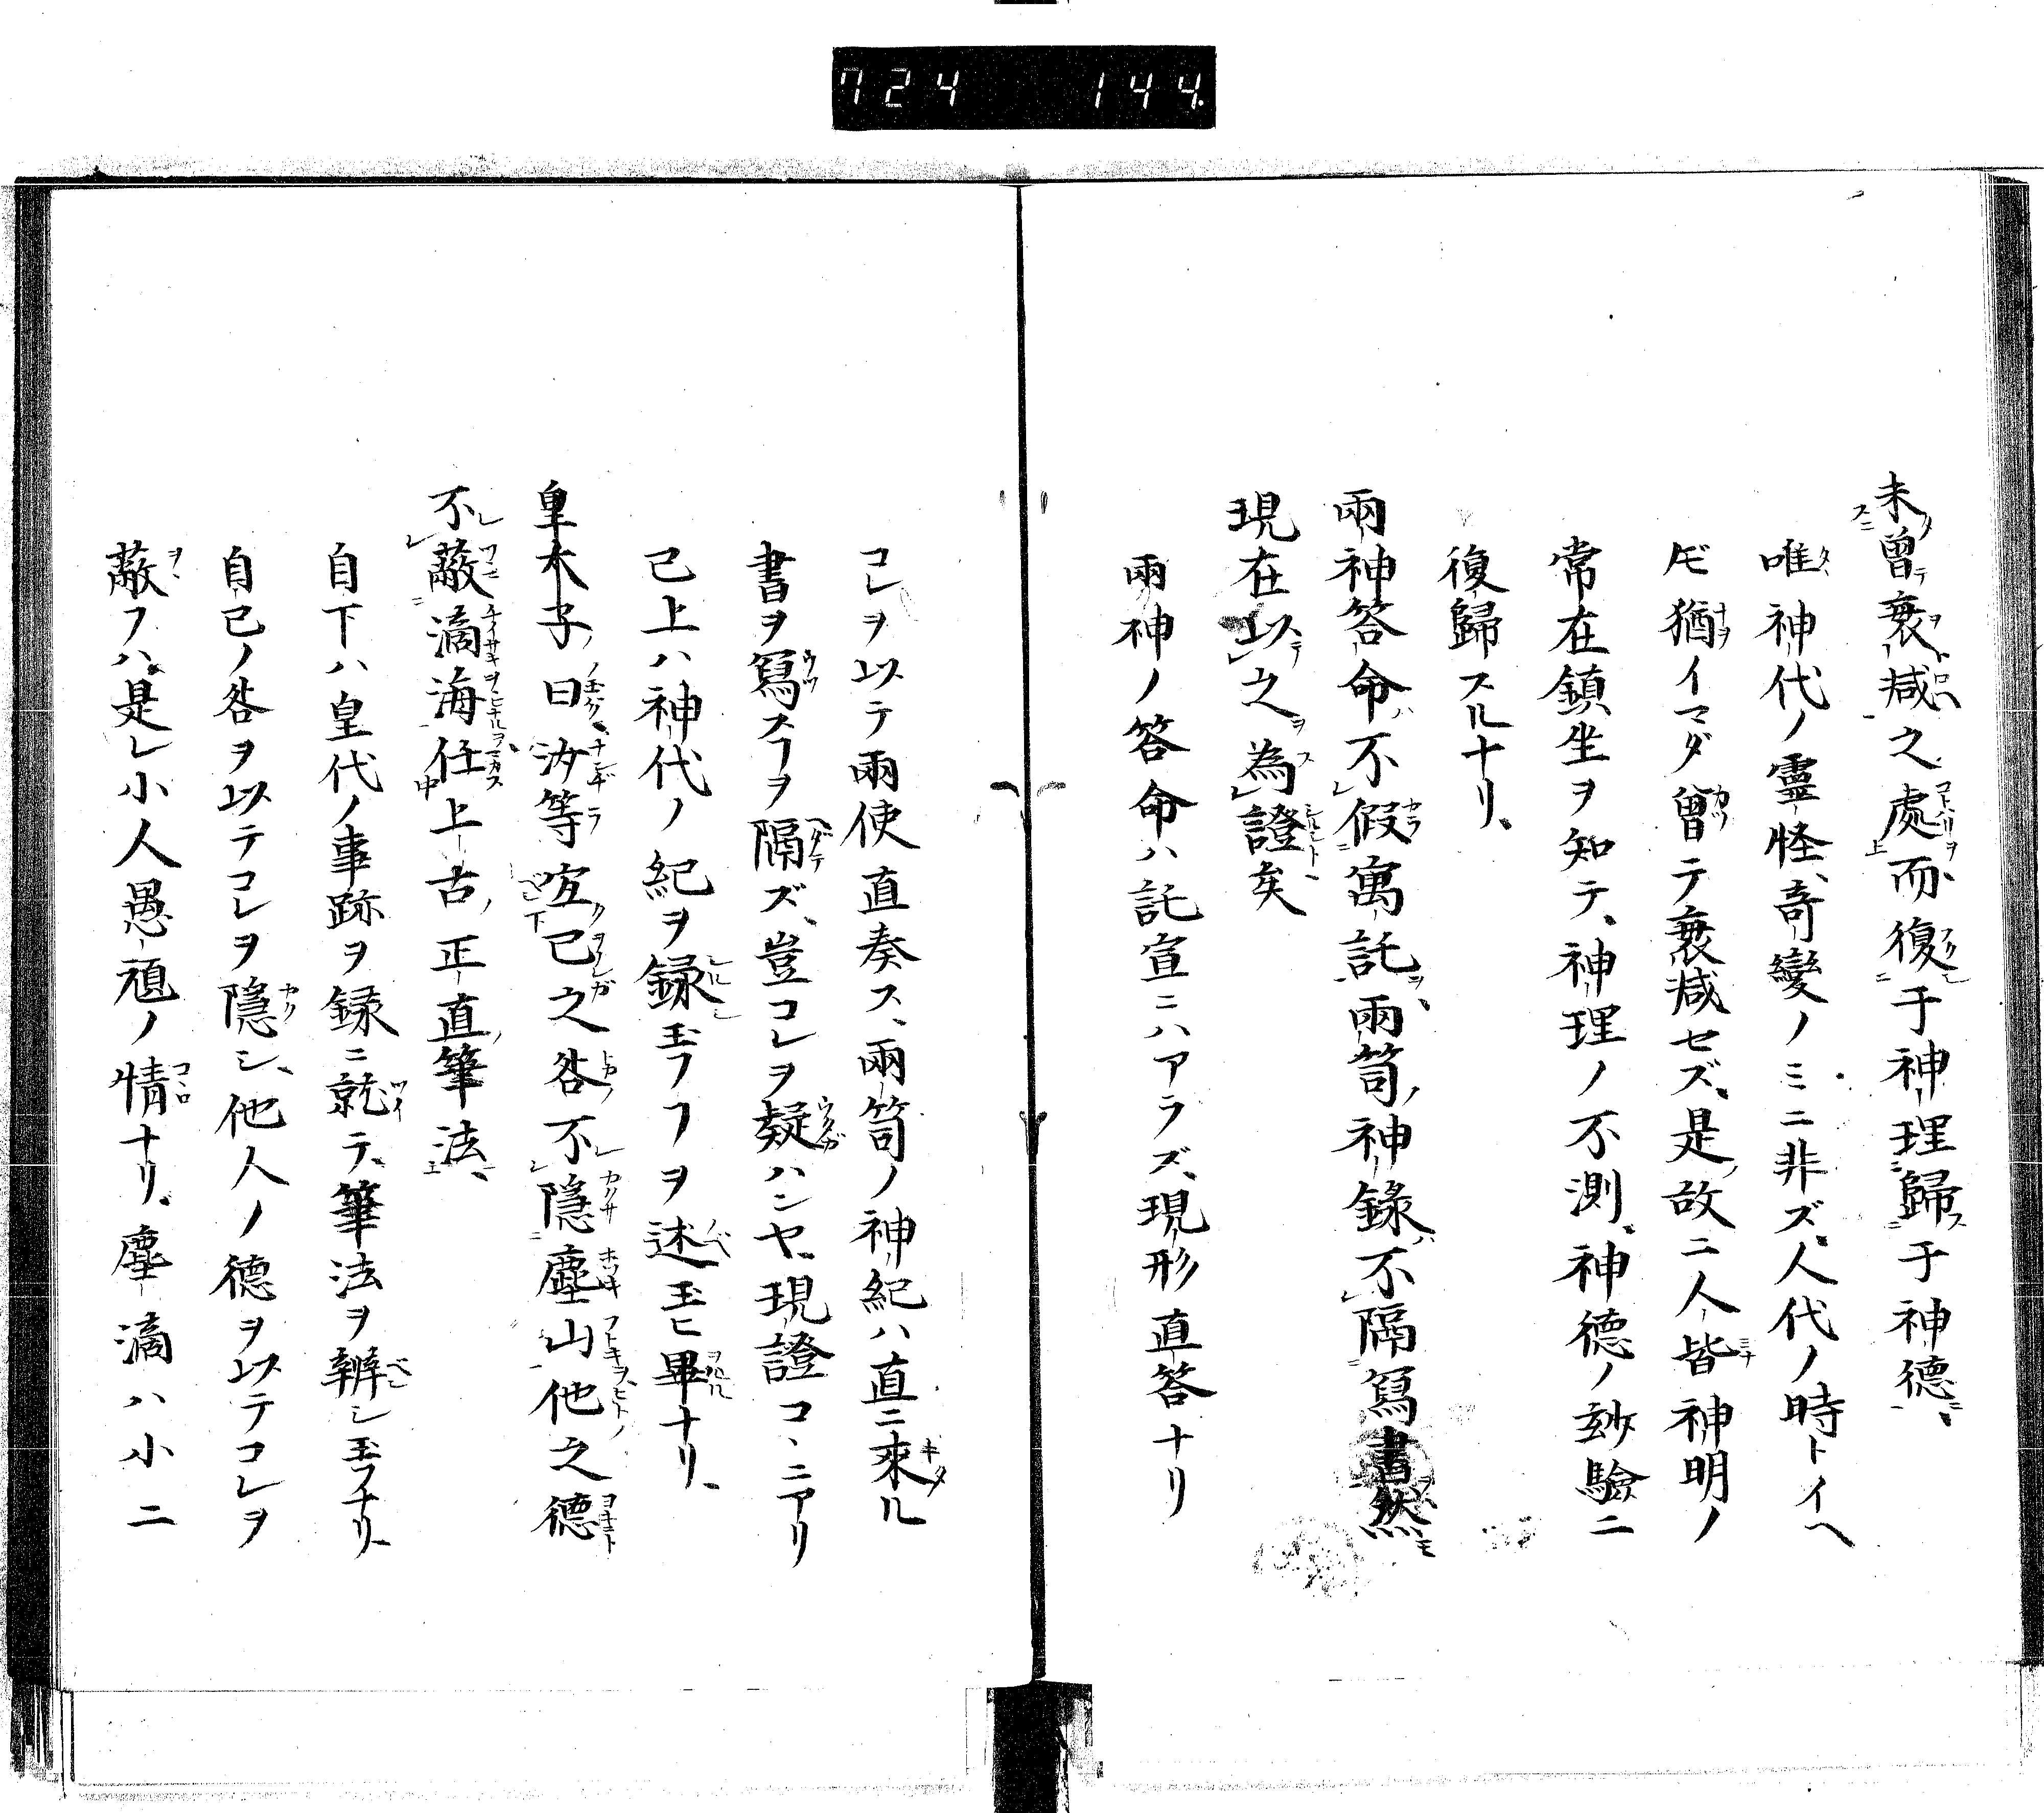 724 144
未曾衰減之處而復于神理歸于神德
唯神代ノ靈怪奇變ノミニ非ズ、人代ノ時トイヘ
ドモ猶イマダ曾テ衰減セズ、是故ニ人皆神明ノ
常在鎮坐ヲ知テ、神理ノ不測、神德ノ玅驗ニ
復歸スルナリ、
兩神答命不假寓託兩笥神錄不隔寫書然
現在以之為證矣
兩神ノ答命ハ託宣ニハアラズ、現形直答ナリ
コレヲ以テ兩使直奏ス、兩笥ノ神紀ハ直ニ來ル
書ヲ寫スヿヲ隔ズ、豈コレヲ疑ハンヤ、現證コヽニアリ
已上ハ神代ノ紀ヲ録玉フヿヲ述玉ヒ畢ナリ、
皇太子曰汝等宜己之咎不隱塵山他之德
不蔽滴海任上古正直筆法
自下ハ皇代ノ事跡ヲ録ニ就テ、筆法ヲ辨シ玉フナリ、
自己ノ咎ヲ以テコレヲ隱シ、他人ノ德ヲ以テコレヲ
蔽フハ、是レ小人愚頑ノ情ナリ、塵滴ハ小ニ